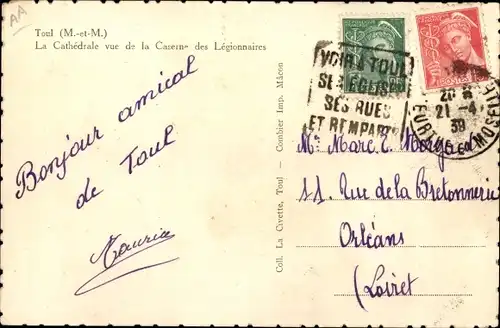 AA
Toul (M.-et-M.)
La Cathédrale vue de la Caserne des Légionnaires
Bonjour amical
de Toul
Maurice
Coll. La Civette, Toul - Combier Imp. Mâcon
VOIR A TOUL
SES EGLISES
SES RUES
ET REMPARTS
20
21-4
39
MEURTHE ET MOSELLE
Mr Marc E.
11 Rue de la Bretonnerie
Orléans
(Loiret